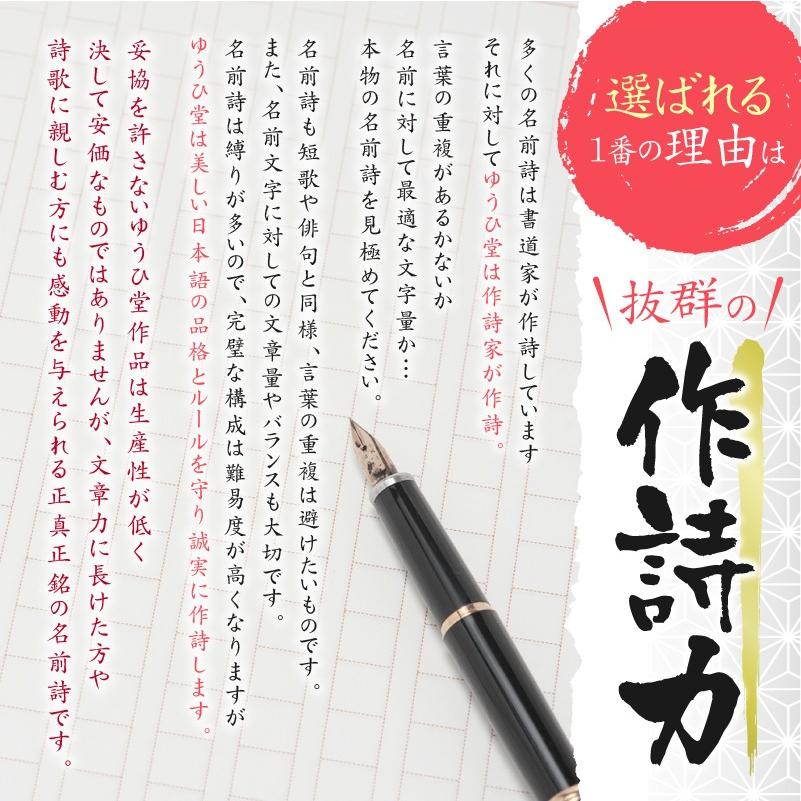 選ばれる
1番の理由は
抜群の
作詩力
多くの名前詩は書道家が作詩しています
それに対してゆうひ堂は作詩家が作詩。
言葉の重複があるかないか
名前に対して最適な文字量か…
本物の名前詩を見極めてください。
名前詩も短歌や俳句と同様、言葉の重複は避けたいものです。
また、名前文字に対しての文章量やバランスも大切です。
名前詩は縛りが多いので、完璧な構成は難易度が高くなりますが
ゆうひ堂は美しい日本語の品格とルールを守り誠実に作詩します。
妥協を許さないゆうひ堂作品は生産性が低く
決して安価なものではありませんが、文章力に長けた方や
詩歌に親しむ方にも感動を与えられる正真正銘の名前詩です。